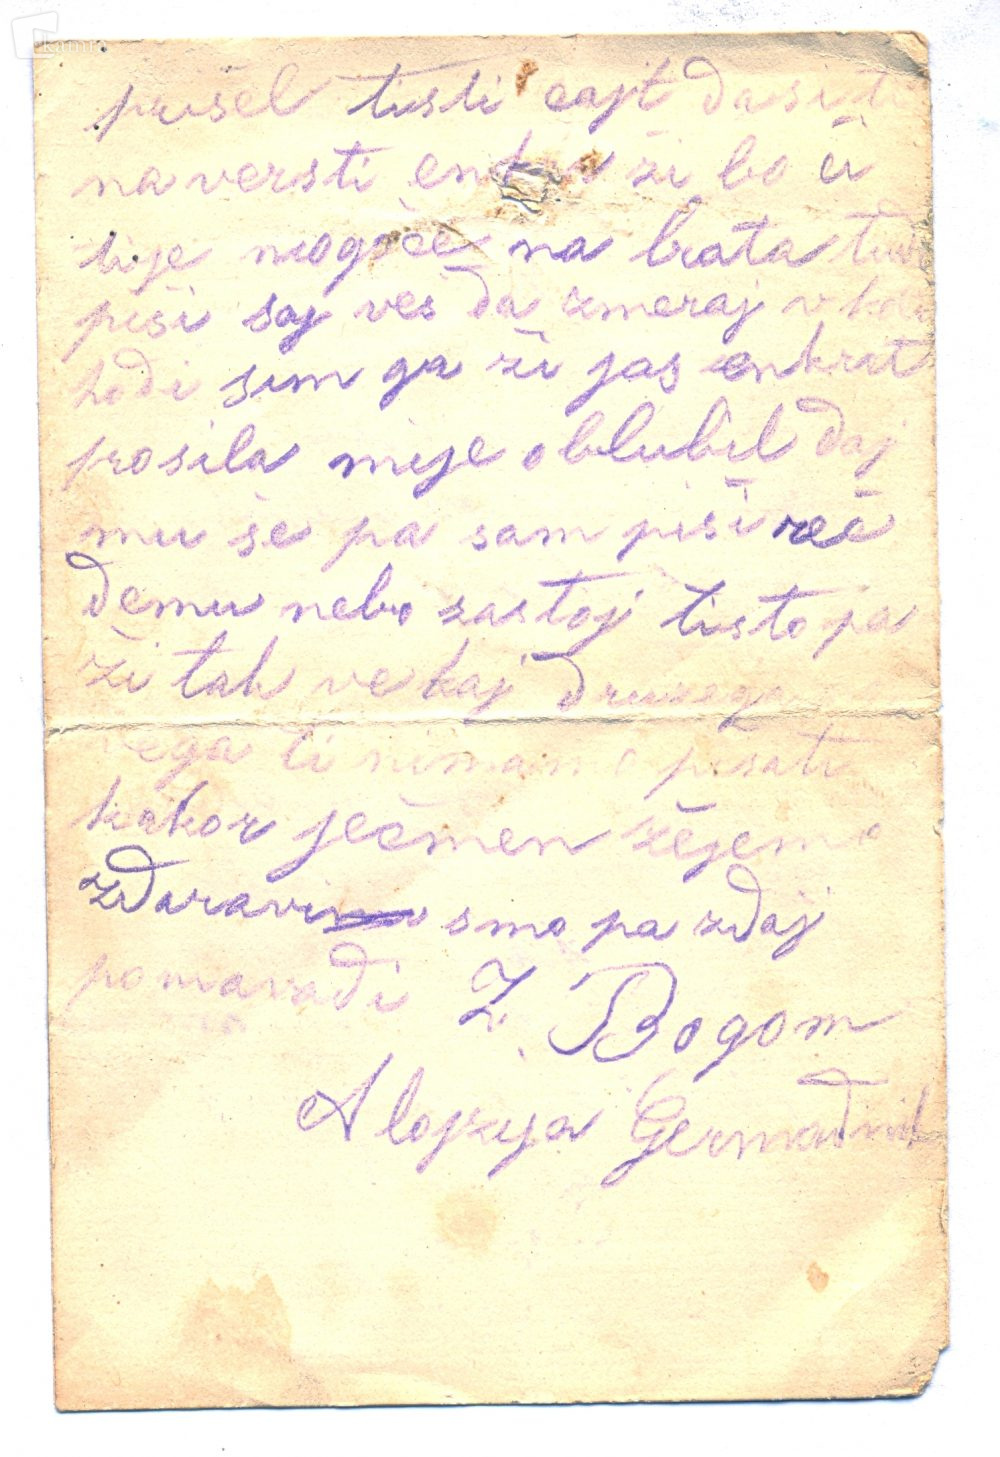 prišel tisti cajt da si ti
na versti ži bo či
tije mogoče na brata tudi
piši saj veš da zmeraj v
hodi sim ga ži jas enkrat
prosila mije oblubil daj
mu še pa sam piši reč
demu nebo zastoj tisto pa
ži tak ve kaj druzega
vega ti nimamo pisati
kakor ječmen žejemo
zdaravi smo pa zdaj
pomavadi Z Bogom
Alojzija Germadnik